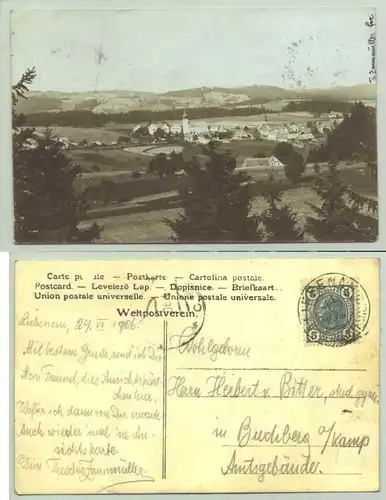 Carte postale — Postkarte — Cartolina postale.
Postcard. — Levelező Lap. — Dopisnice. — Briefkaart.
Union postale universelle. — Unione postale universale.
Weltpostverein.
29. VI 1906.
Mit bestem Gruße send ich Dir
Mein Freund, dies Ansichtskärt-
chen hier,
Wofür ich dann von Dir erwarte
Auch wieder 'mal 'ne An-
sichtskarte.
Wohlgeboren
Herrn Herbert v.
in a/Kamp
Amtsgebäude.
5
5